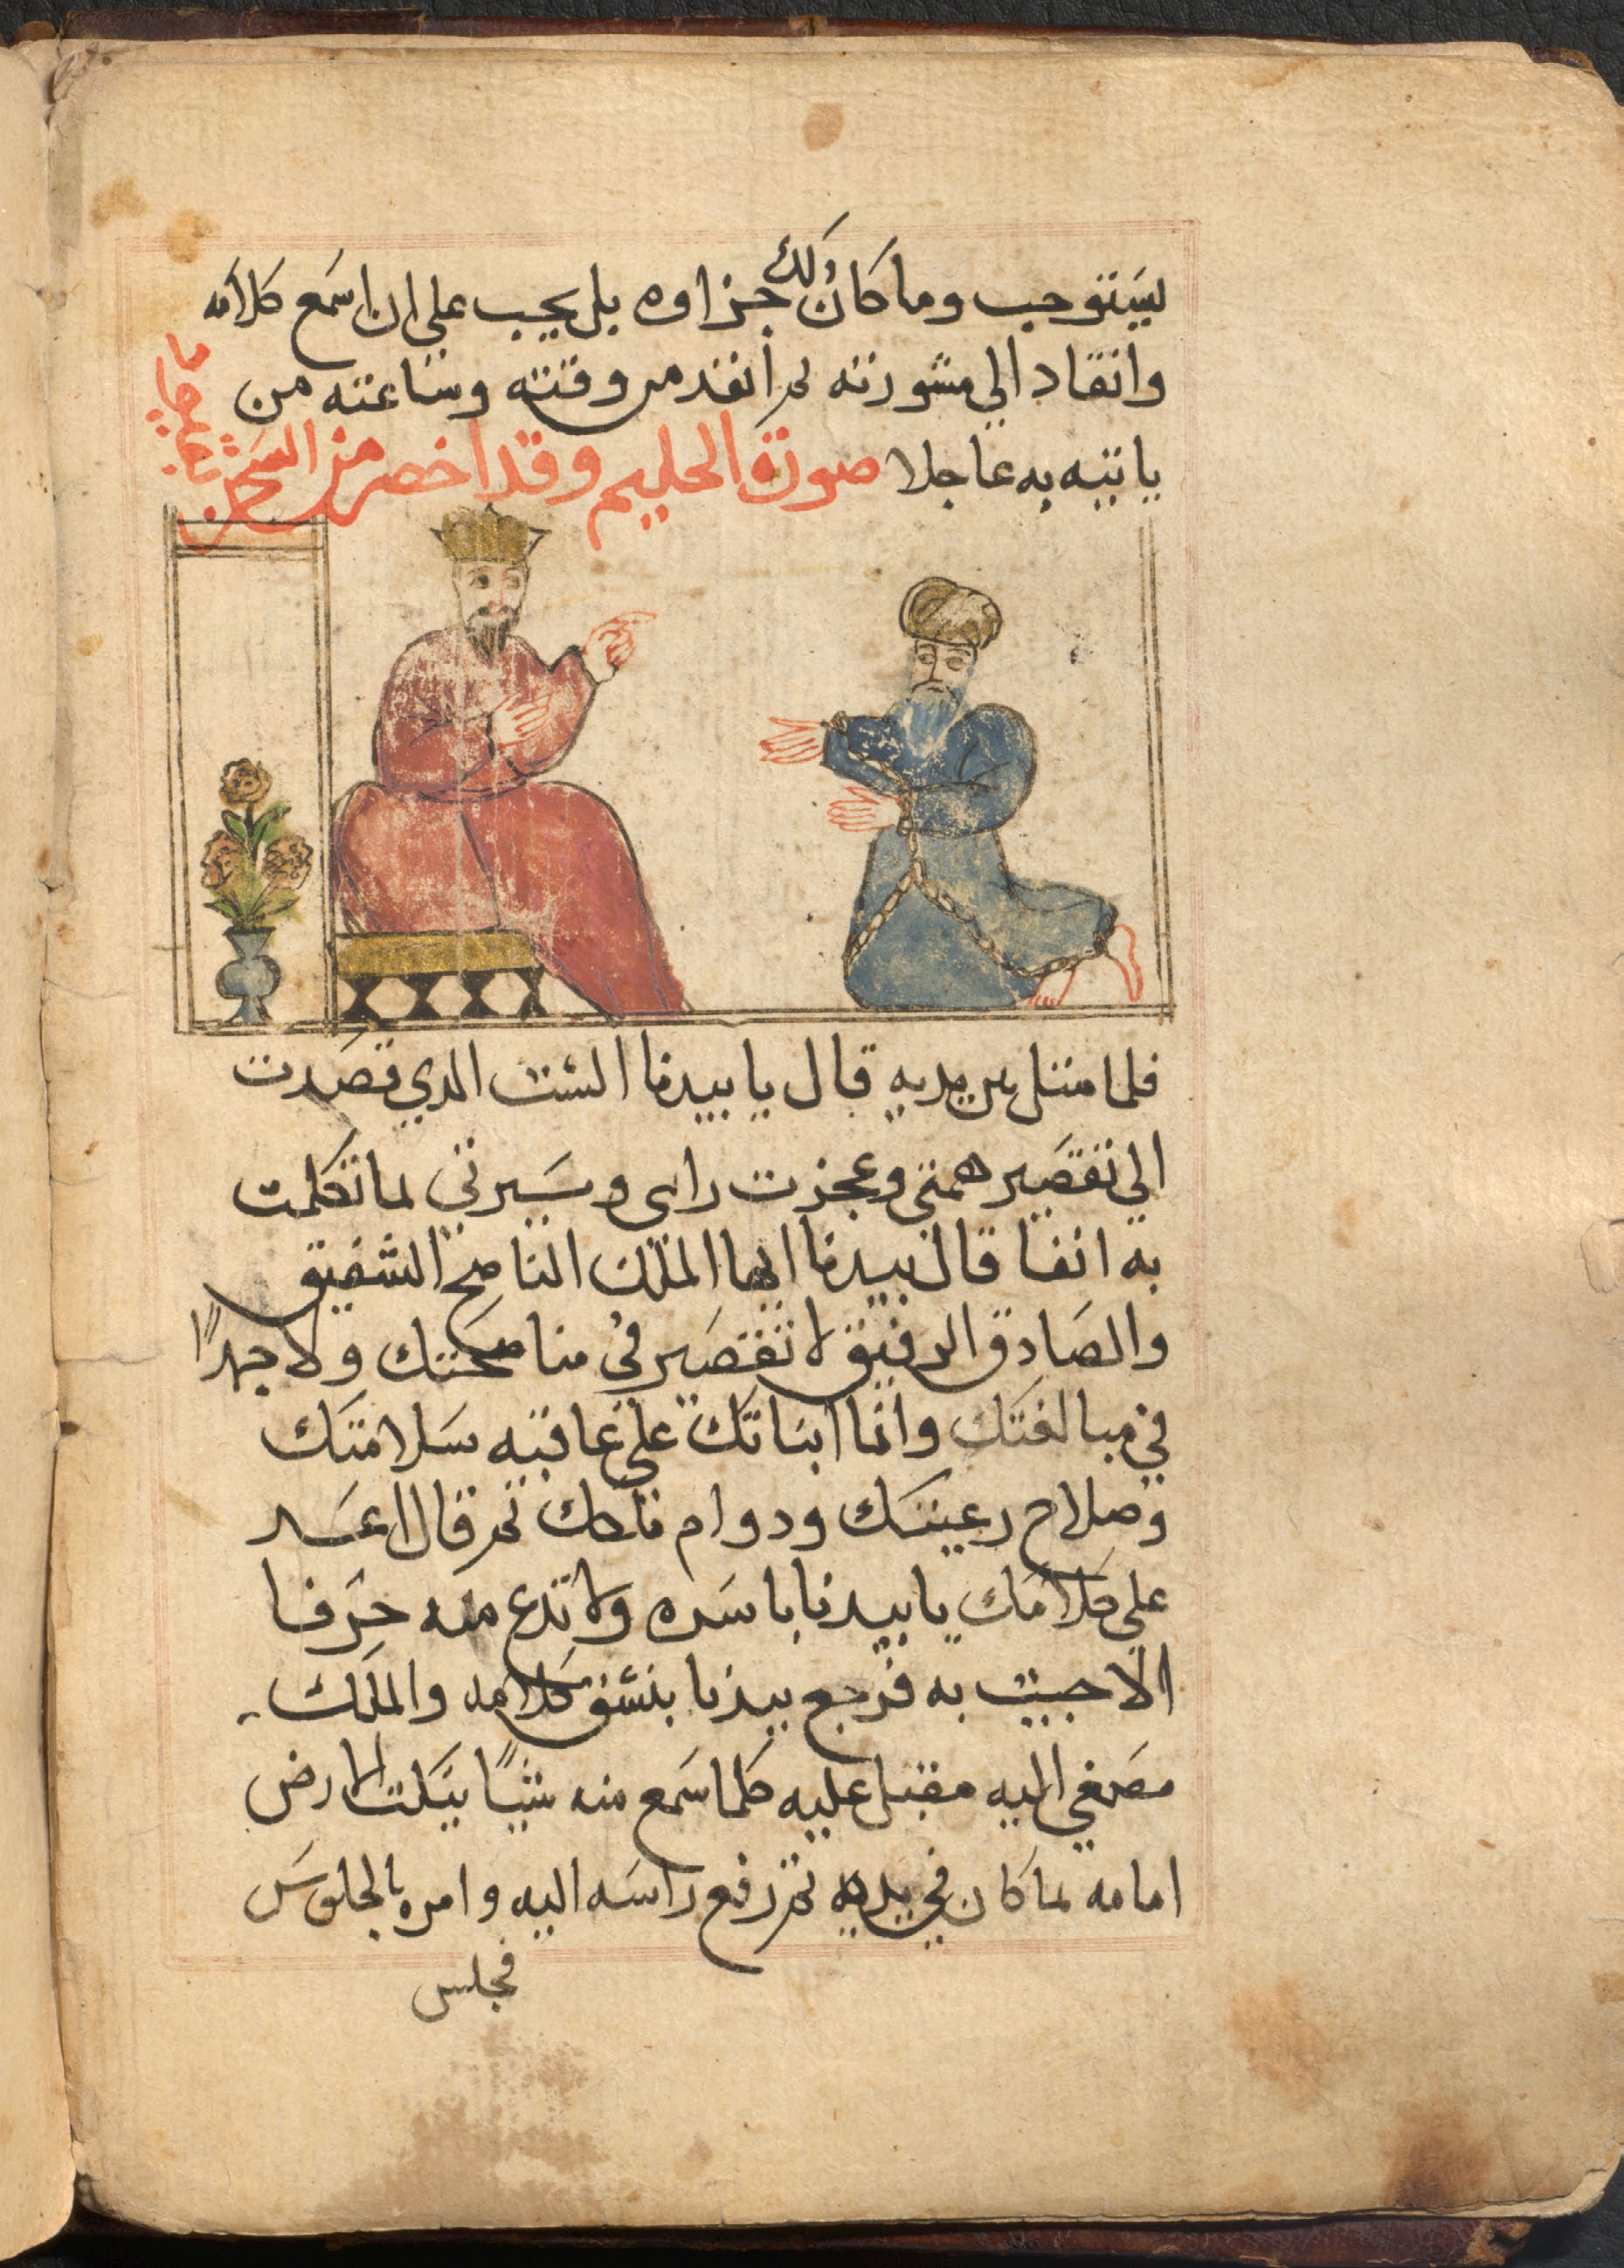 يستوجب وما كان ذلك جزاوه بل يجب علي ان اسمع كلامه
وانقاد الي مشورته ثم انفد من وقته وساعته من
ياتيه به عاجلا صورة الحليم وقد احضر من السجن
فلما امتثل بين يديه قال يا بيدبا الست الدي قصدت
الي تقصير همتي وعجزت رايي وسيرتي لما تكلمت
به انفا قال بيدبا ايها الملك الناصح الشفيق
والصادق الرفيق لا تقصير في مناصحتك ولا جهدًا
في مبالغتك وانا
علي عاقبه سلامتك
وصلاح رعيتك ودوام ملكك ثم قال اعد
علي كلامك يا بيدبا باسره ولا تدع منه حرفا
الا جيت به فرجع بيدبا ينشق كلامه والملك
مصغي اليه مقبل عليه كلما سمع منه شيًا ينكت الارض
امامه لما كان في يديه ثم رفع راسه اليه وامره بالجلوس
فجلس